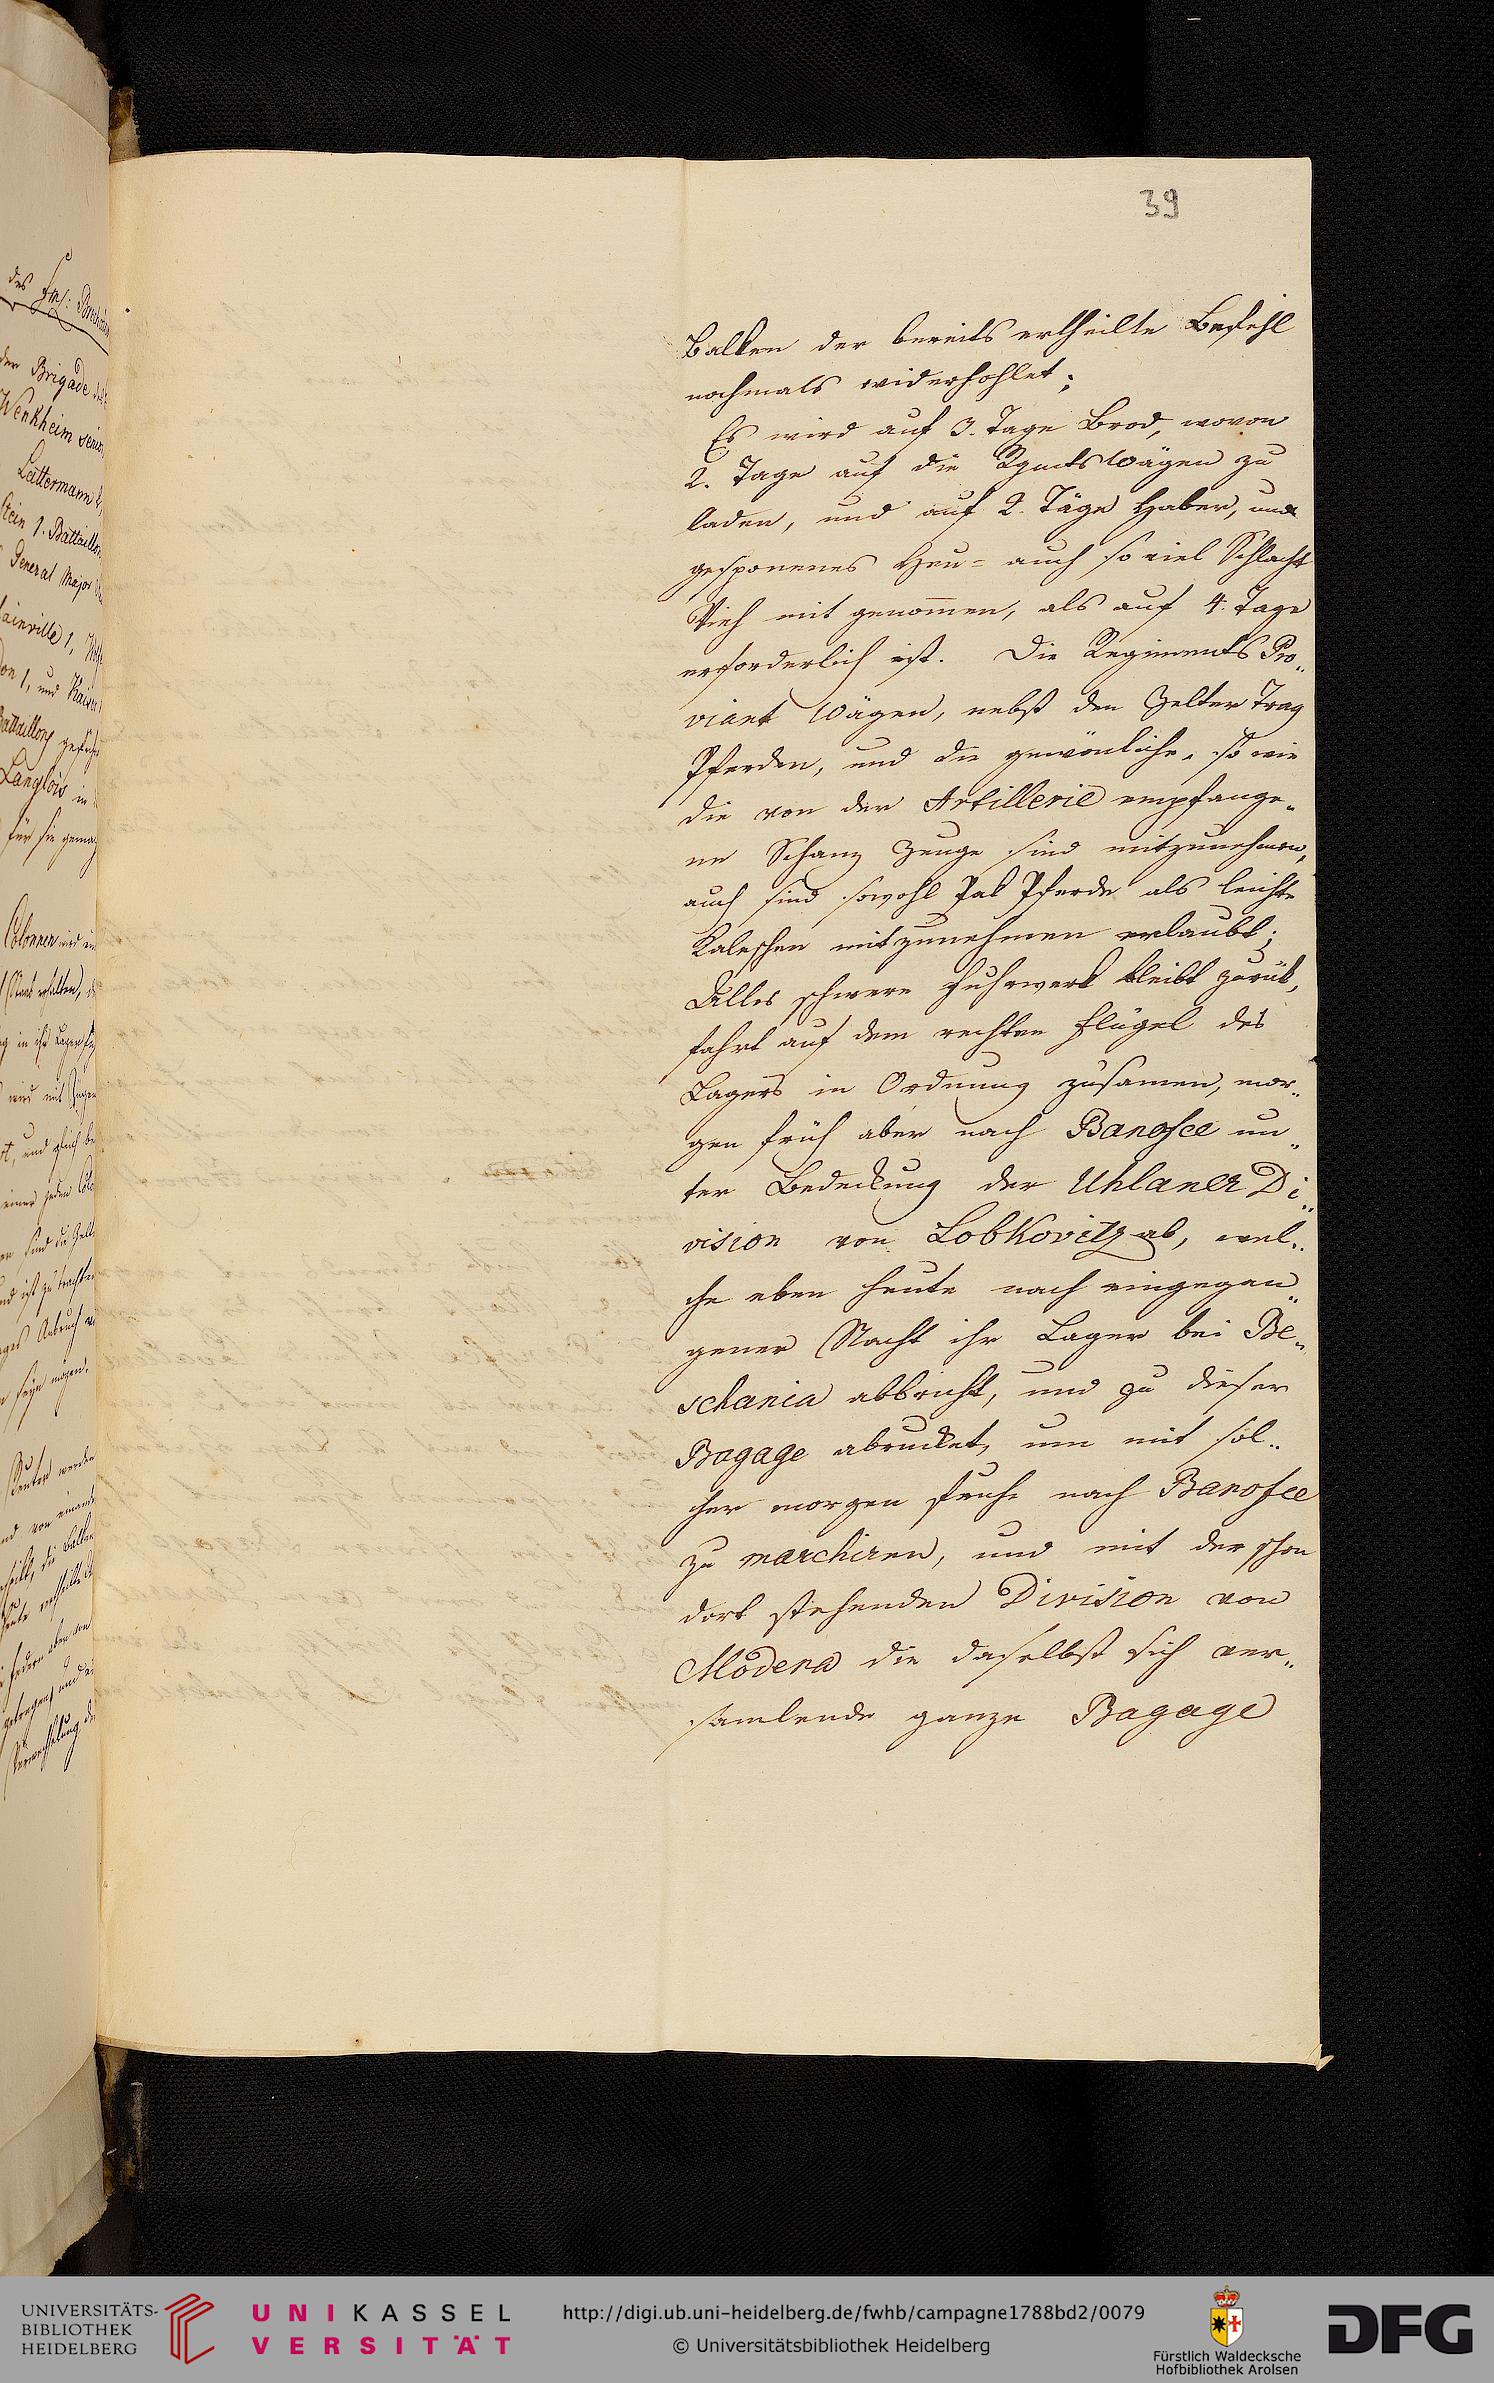 39
Balken der bereits ertheilte Befehl
nochmals widerhohlet;
Es wird auf 3. Tage Brod, wovon
2. Tage auf die RgmtsWägen zu
laden, und auf 2. Täge Haber, und
gesponenes Heu = auch so viel Schlacht
Vieh mit genom̄en, als auf 4. Tage
erforderlich ist. Die Regiments Pro„
viant Wägen, nebst den Zelter Trag
Pferden, und die gewönliche, so wie
die von der Artillerie empfange„
ne Schanz Zeuge sind mitzunehmen,
auch sind sowohl Pak Pferde als leichte
Kaleschen mitzunehmen erlaubt;
Alles schwere Fuhrwerk bleibt zurük,
fahrt auf dem rechten Flügel des
Lagers in Ordnung zusamen, mor„
gen früh aber nach Banofce un„
ter Bedeckung der Uhlaner Di„
vision von Lobkovitz ab, wel„
che eben heute nach eingegan„
gener Nacht ihr Lager bei Be„
schania abbricht, und zu dieser
Bagage abrucket, um mit sol„
cher morgen fruhe nach Banofce
zu marchiren, und mit der schon
dort stehenden Division von
Modena die daselbst sich ver„
samlende ganze Bagage
des FML:
der Brigade
Wenkheim
Lattermann
Stein 1. Battaillon
General Major
lainville 1,
1, und Kaiser
Battaillons
Langlois in
für sie
Colonnen wird ein
UNIVERSITÄTS-
BIBLIOTHEK
HEIDELBERG
UNIKASSEL
VERSITÄT
http://digi.ub.uni-heidelberg.de/fwhb/campagne1788bd2/0079
© Universitätsbibliothek Heidelberg
Fürstlich Waldecksche
Hofbibliothek Arolsen
DFG